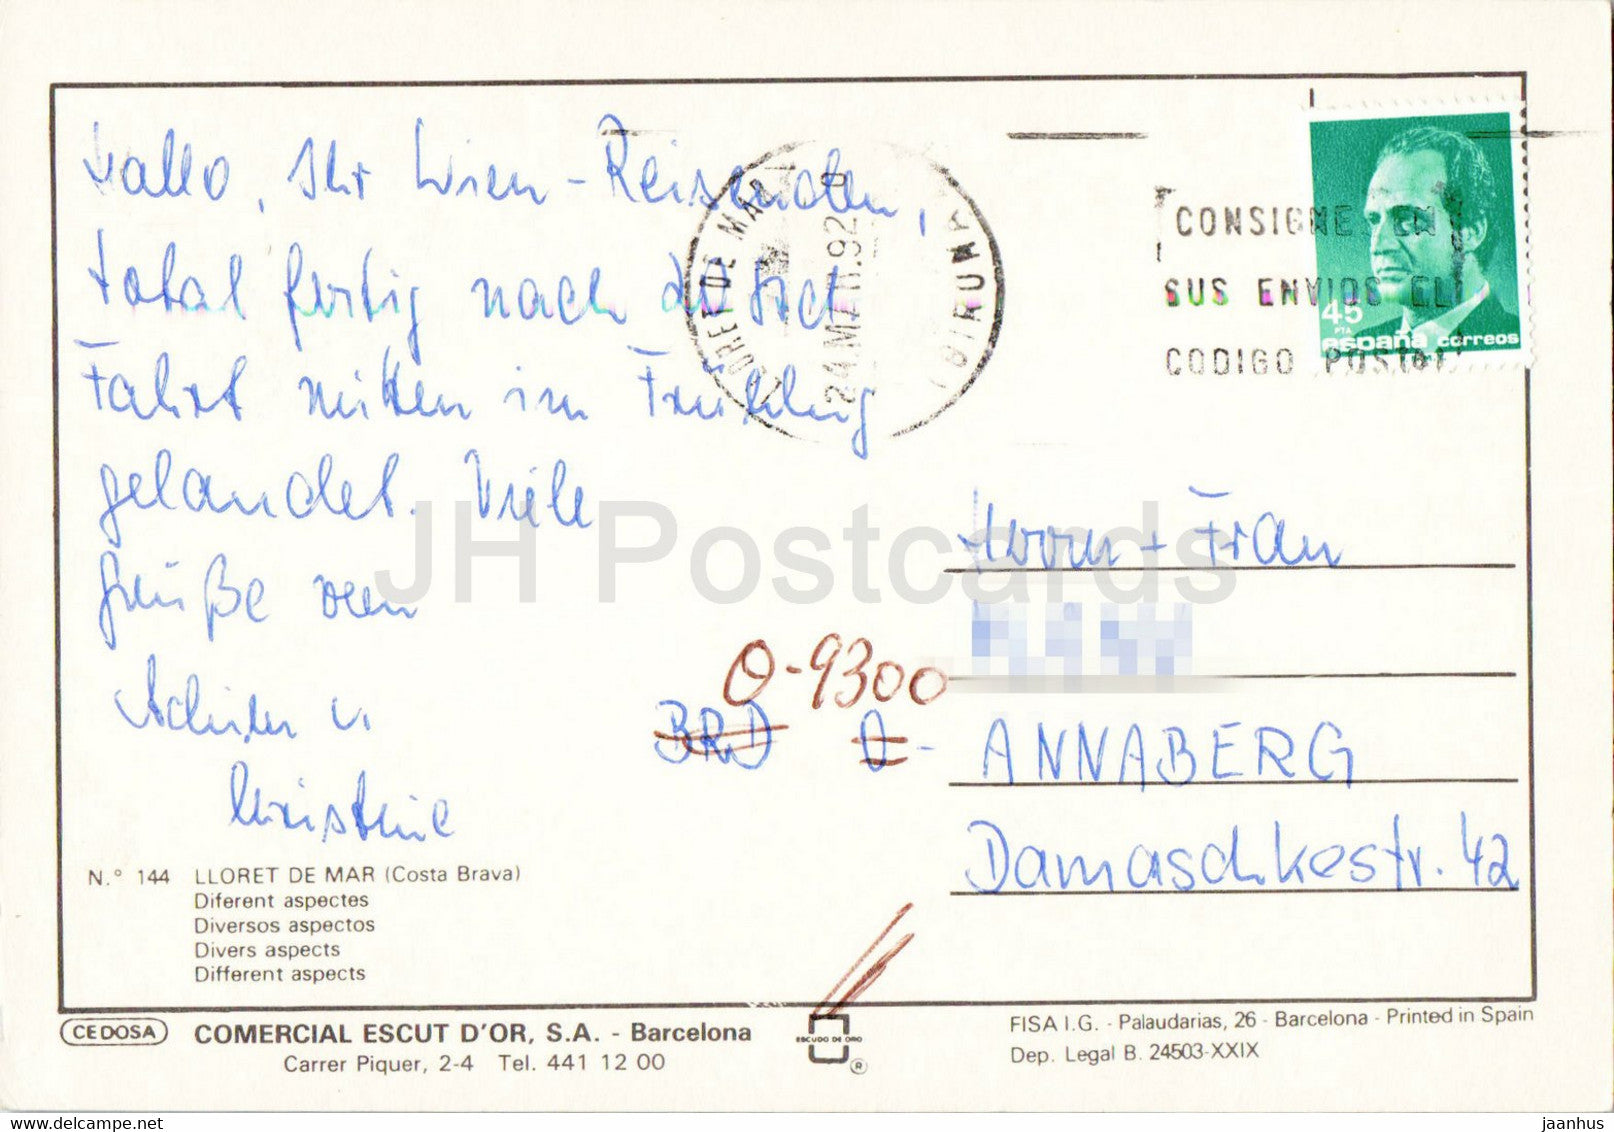 Hallo, Ihr Wien-Reisenden,
total fertig nach der
Fahrt mitten im Frühling
gelandet. Viele
Grüße von
Achim u.
Christine
LLORET DE MAR
24.MZ 92
(GIRONA)
CONSIGNE EN
SUS ENVIOS EL
CODIGO POSTAL
45
PTA
españa correos
Herrn + Frau
O-9300
BRD O- ANNABERG
Damaschkestr. 42
N.° 144 LLORET DE MAR (Costa Brava)
Diferent aspectes
Diversos aspectos
Divers aspects
Different aspects
CEDOSA COMERCIAL ESCUT D'OR, S.A. - Barcelona
Carrer Piquer, 2-4 Tel. 441 12 00
ESCUDO DE ORO
®
FISA I.G. - Palaudarias, 26 - Barcelona - Printed in Spain
Dep. Legal B. 24503-XXIX
JH Postcards
www.delcampe.net
jaanhus